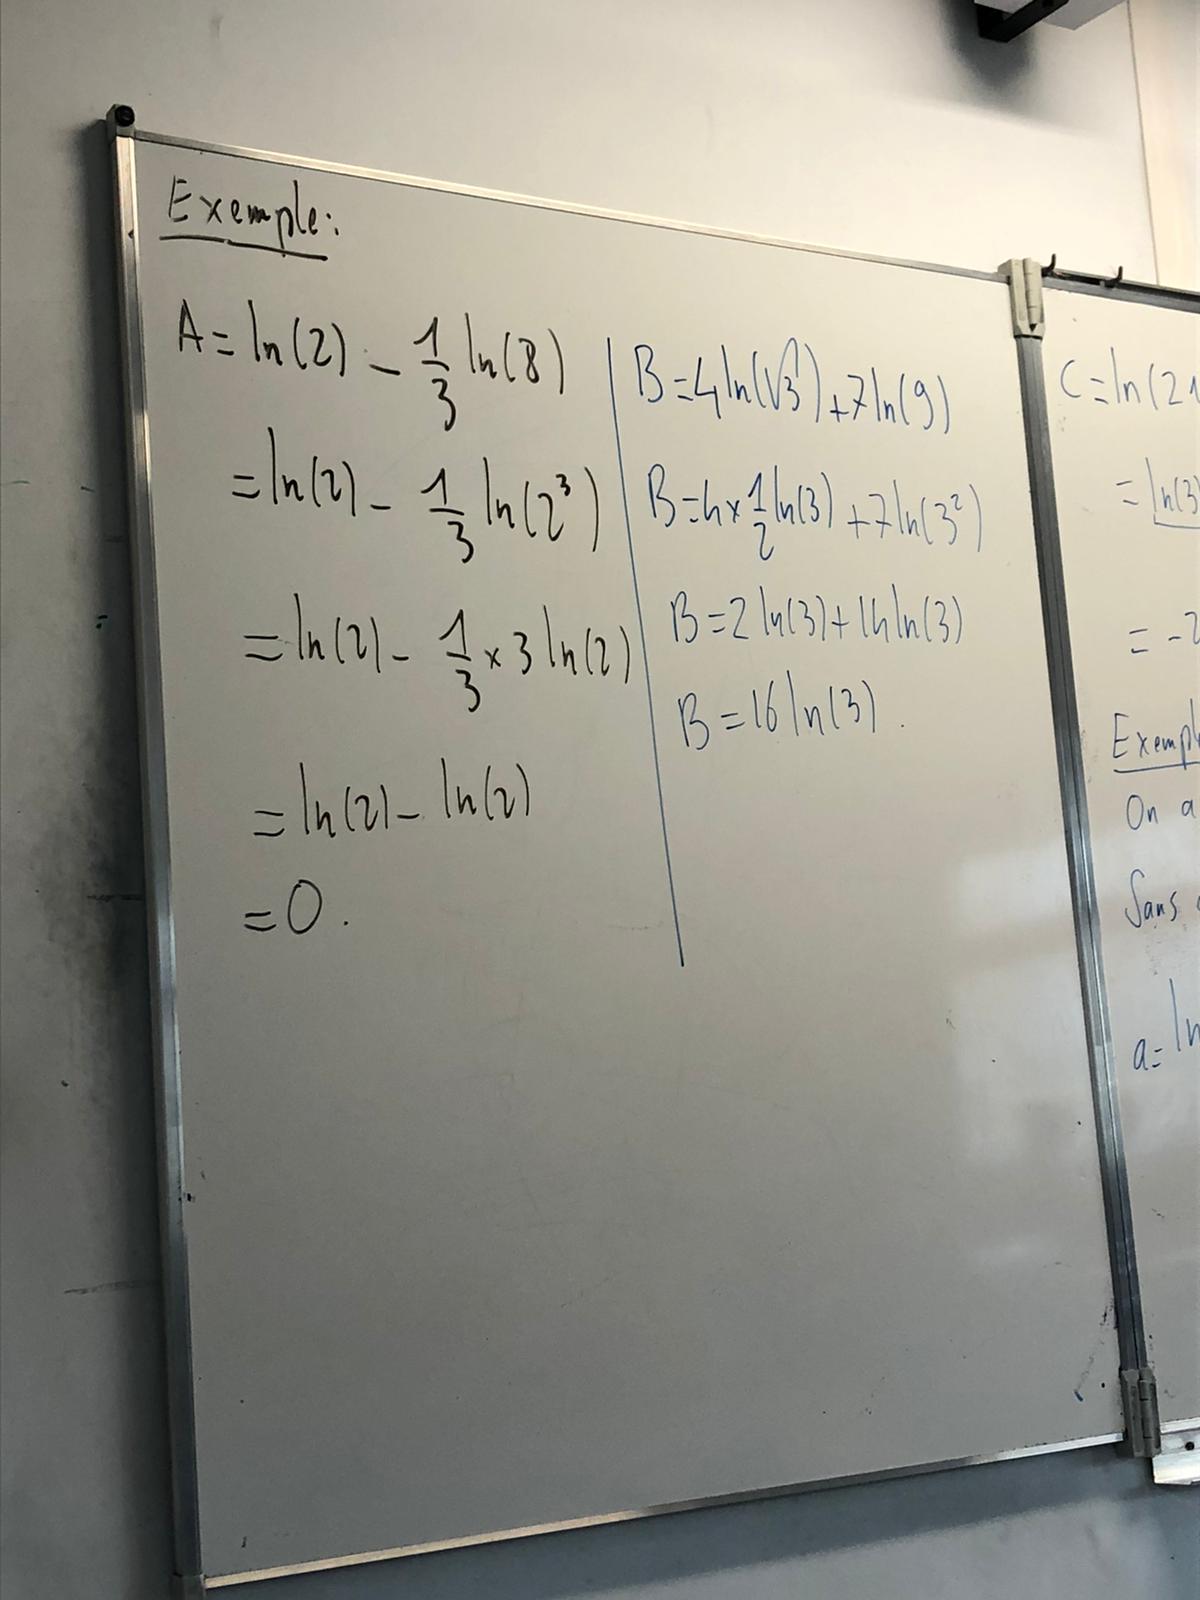 Exemple:
A = ln(2) - 1/3 ln(8)
= ln(2) - 1/3 ln(2³)
= ln(2) - 1/3 × 3 ln(2)
= ln(2) - ln(2)
= 0.
B = 4 ln(√3) + 7 ln(9)
B = 4 × 1/2 ln(3) + 7 ln(3²)
B = 2 ln(3) + 14 ln(3)
B = 16 ln(3).
C = ln(21
= ln(3)
= -2
On a
Sans
a = ln